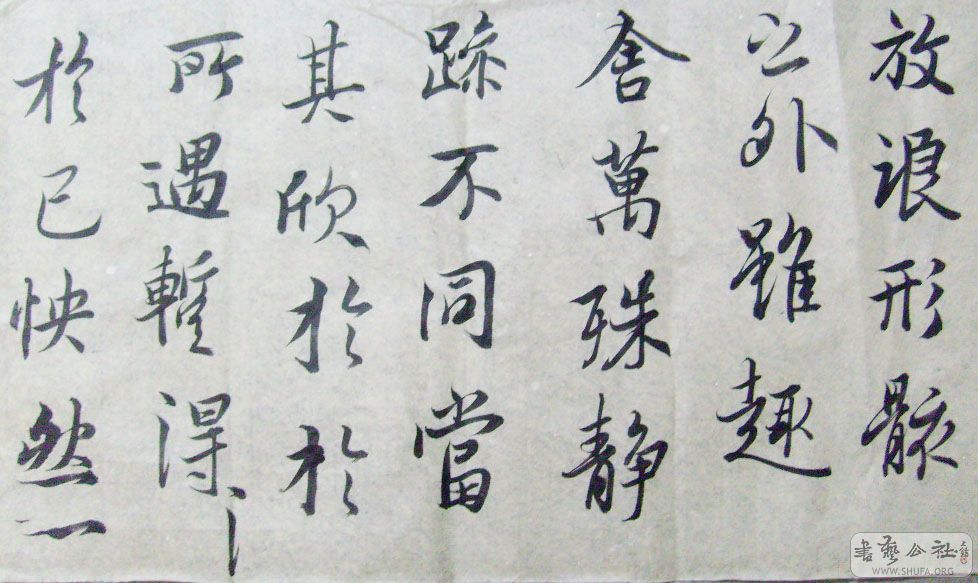 放浪形骸
之外雖趣
舍萬殊静
躁不同當
其欣於於
所遇暫得
於己怏然
書藝公社
WWW.SHUFA.ORG